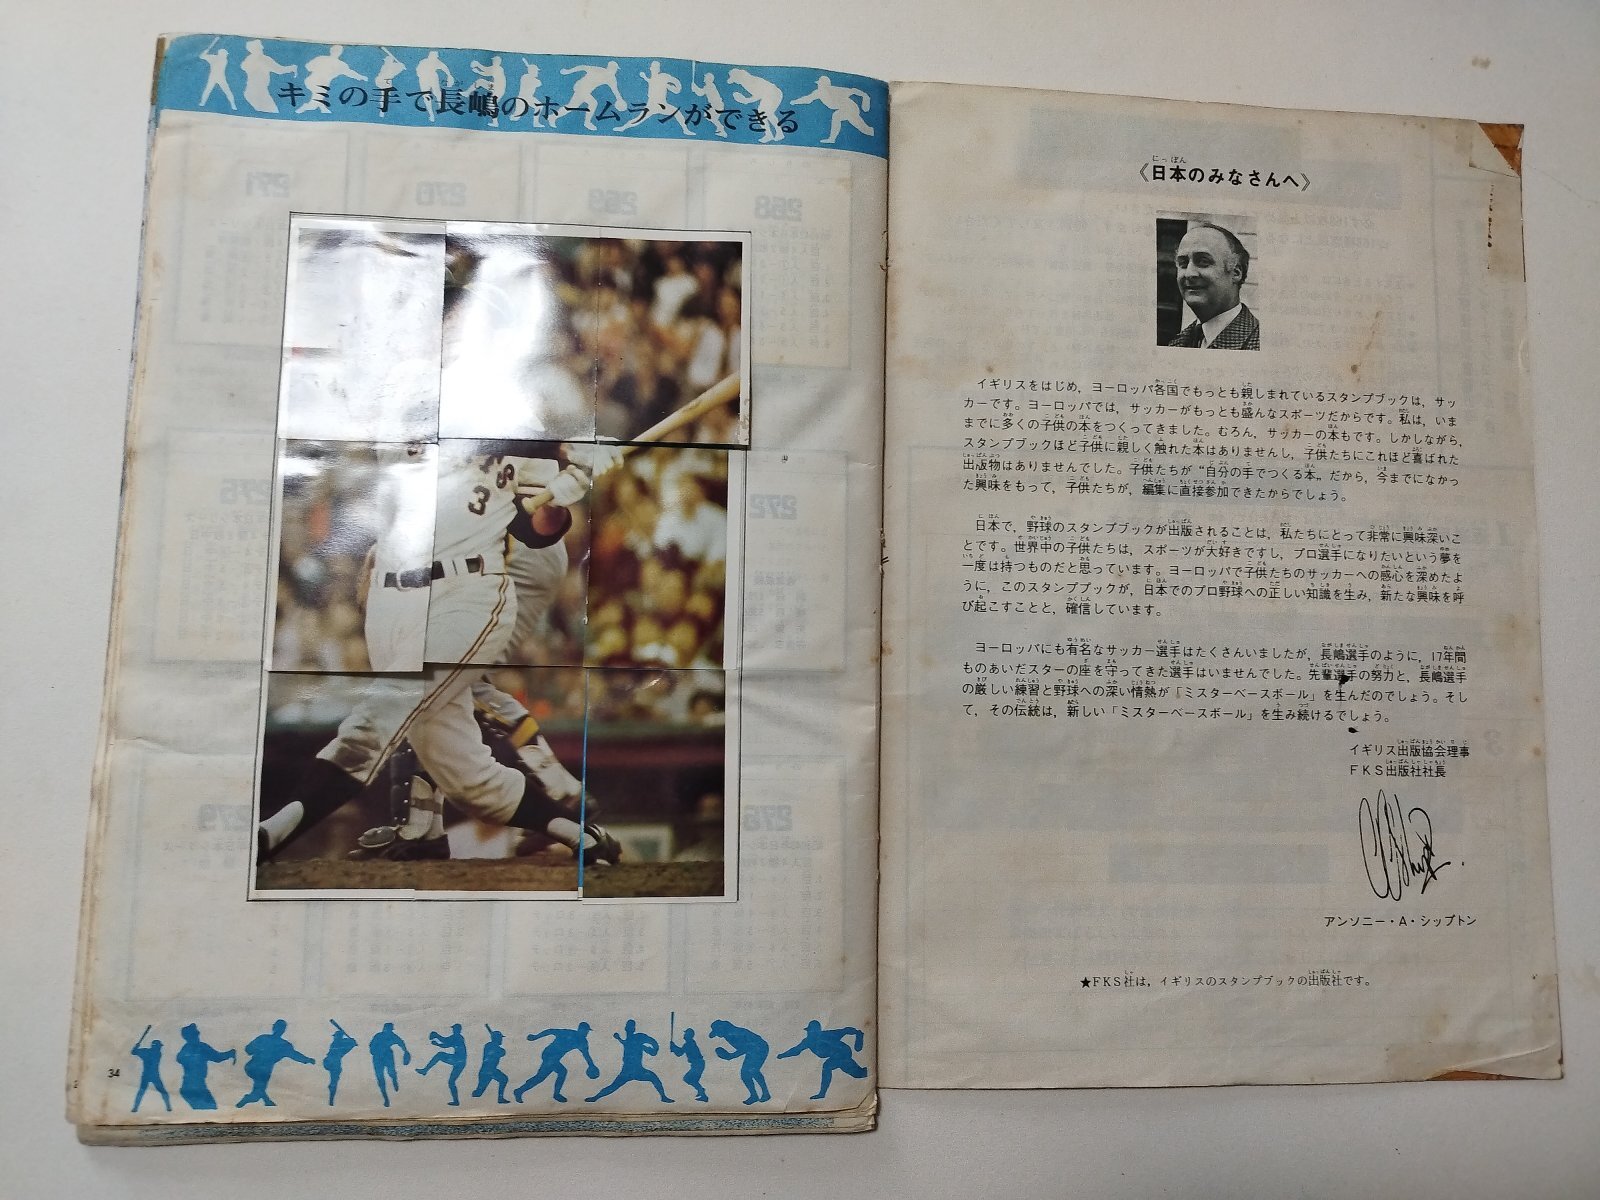 キミの手で長嶋のホームランができる
3
34
《日本のみなさんへ》
イギリスをはじめ，ヨーロッパ各国でもっとも親しまれているスタンプブックは，サッ
カーです。ヨーロッパでは，サッカーがもっとも盛んなスポーツだからです。私は，いま
までに多くの子供の本をつくってきました。むろん，サッカーの本もです。しかしながら，
スタンプブックほど子供に親しく触れた本はありませんし，子供たちにこれほど喜ばれた
出版物はありませんでした。子供たちが“自分の手でつくる本„だから，今までになかっ
た興味をもって，子供たちが，編集に直接参加できたからでしょう。
日本で，野球のスタンプブックが出版されることは，私たちにとって非常に興味深いこ
とです。世界中の子供たちは，スポーツが大好きですし，プロ選手になりたいという夢を
一度は持つものだと思っています。ヨーロッパで子供たちのサッカーへの感心を深めたよ
うに，このスタンプブックが，日本でのプロ野球への正しい知識を生み，新たな興味を呼
び起こすことと，確信しています。
ヨーロッパにも有名なサッカー選手はたくさんいましたが，長嶋選手のように，17年間
ものあいだスターの座を守ってきた選手はいませんでした。先輩選手の努力と，長嶋選手
の厳しい練習と野球への深い情熱が「ミスターベースボール」を生んだのでしょう。そし
て，その伝統は，新しい「ミスターベースボール」を生み続けるでしょう。
イギリス出版協会理事
FKS出版社社長
アンソニー・A・シップトン
★FKS社は，イギリスのスタンプブックの出版社です。